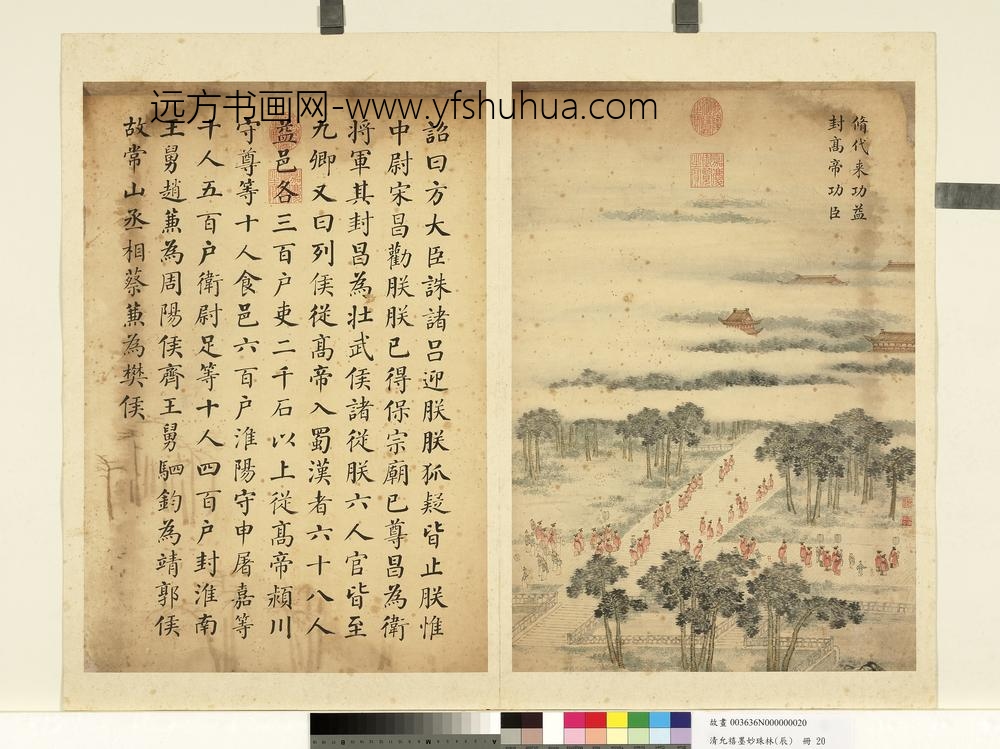 远方书画网-www.yfshuhua.com
脩代来功益
封髙帝功臣
詔曰方大臣誅諸吕迎朕朕狐疑皆止朕惟
中尉宋昌勸朕朕已得保宗廟已尊昌為衛
将軍其封昌為壯武侯諸從朕六人官皆至
九卿又曰列侯從髙帝入蜀漢者六十八人
益邑各三百户吏二千石以上從髙帝潁川
守尊等十人食邑六百户淮陽守申屠嘉等
十人五百户衛尉足等十人四百户封淮南
王舅趙蒹為周陽侯齊王舅駟鈞為靖郭侯
故常山丞相蔡蒹為樊侯
故畫 003636N000000020
清允禧墨妙珠林(辰) 冊 20